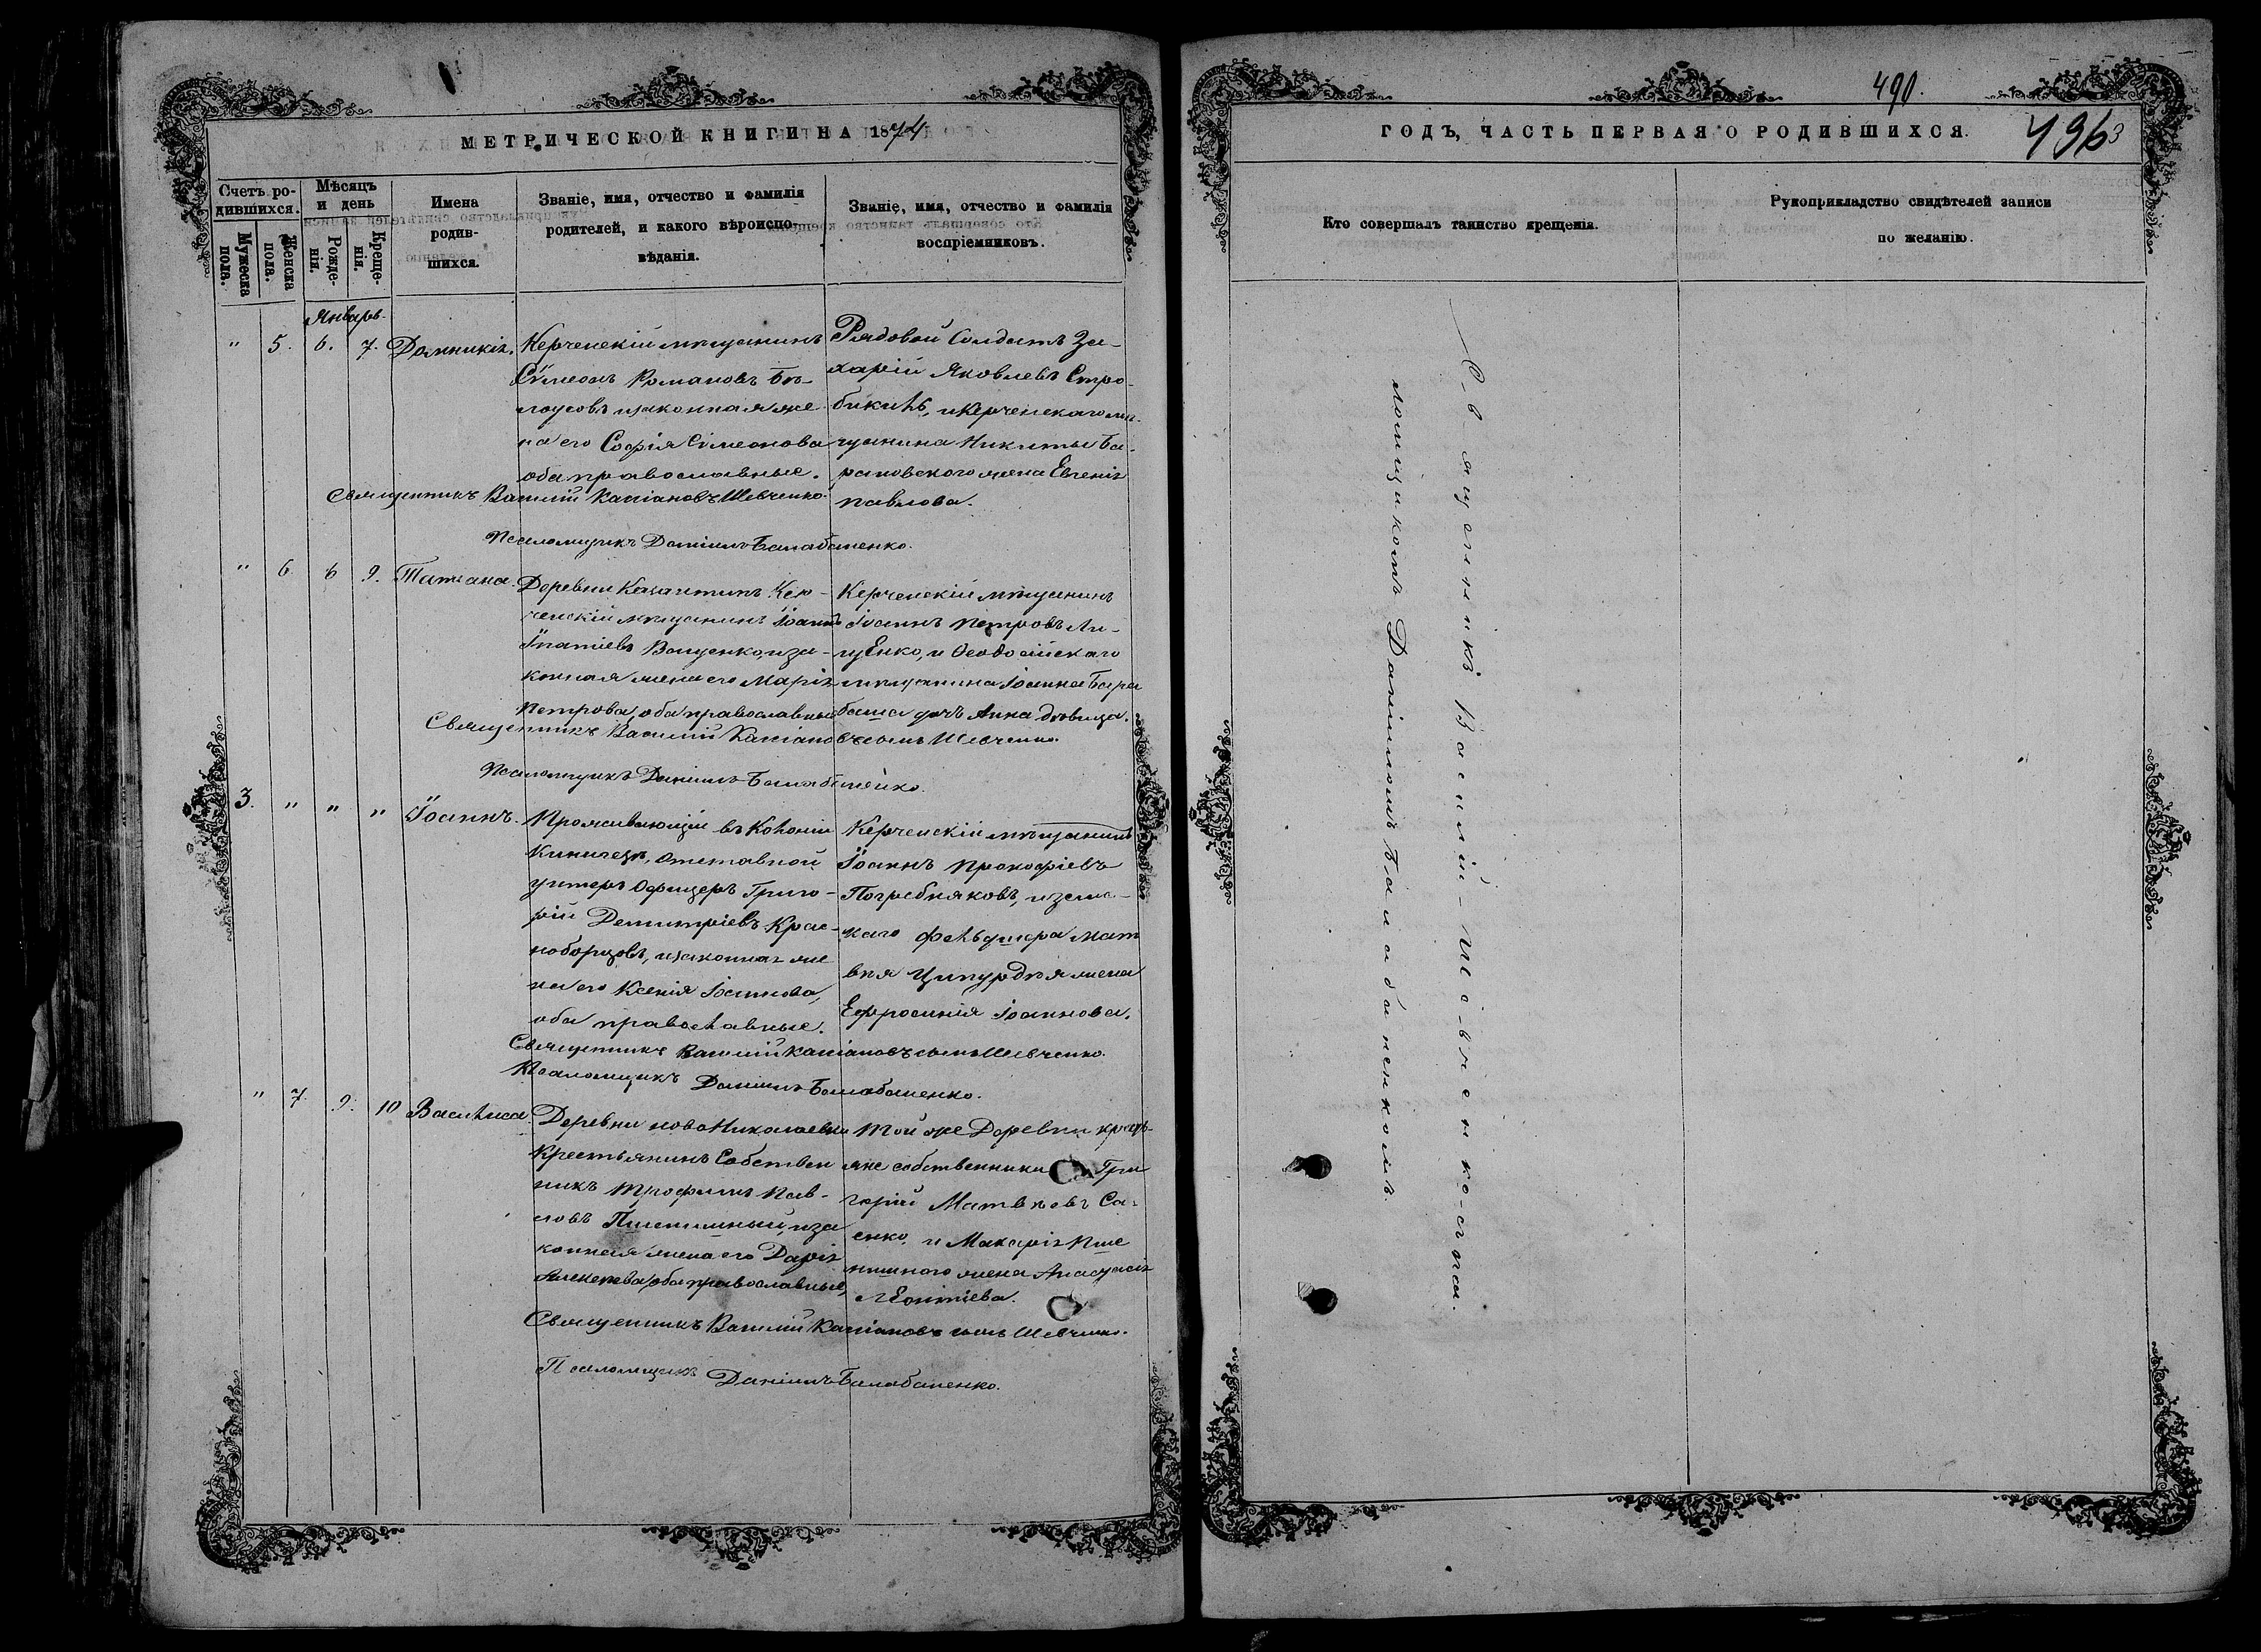 МЕТРИЧЕСКОЙ КНИГИ НА 1874
Счетъ ро-
дившихся.
Мужеска
пола.
Женска
пола.
Мѣсяцъ
и день
Рожде-
нія.
Креще-
нія.
Имена
родив-
шихся.
Званіе, имя, отчество и фамилія
родителей, и какого вѣроиспо-
вѣданія.
Званіе, имя, отчество и фамилія
воспріемниковъ.
Январь.
" 5. 6. 7. Домникія.
Керченскій мѣщанинъ
Сѵмеонъ Романовъ Бѣ-
лоусовъ и законная же
на его Софія Сѵмеонова
оба православные.
Рядовой Солдатъ За-
харій Яковлевъ Стро-
бикинъ, и Керченскаго мѣ-
щанина Никиты Ба-
рановского жена Евгенія
Павлова.
Священникъ Василій Касіановъ Шевченко.
Псаломщикъ Даніилъ Балабаненко.
" 6. 6 9. Татіана.
Деревни Казантипъ Кер-
ченскій мѣщанинъ Іоаннъ
Ипатіевъ Ващенко, и за-
конная жена его Марія
Петрова, оба православные
Керченскій мѣщанинъ
Іоаннъ Петровъ Ли-
щЕнко, и Ѳеодосійскаго
мѣщанина Іоанна Бара
баша дочь Анна дѣвица.
Священникъ Василій Касіановъ сынъ Шевченко.
Псаломщикъ Даніилъ Балабаненко.
3. " " " Іоаннъ.
Проживающій въ Колоніи
Киничезъ, отставной
унтеръ Офицеръ Григо-
рій Димитріевъ Крас-
ноборцовъ, и законная же
на его Ксенія Іоаннова,
оба православные.
Керченскій мѣщанинъ
Іоаннъ Прокофіевъ
Погребняковъ, и земс-
каго фельдшера Мат
вея Ципурдѣя жена
Ефросинія Іоаннова.
Священникъ Василій Касіановъ сынъ Шевченко.
Псаломщикъ Даніилъ Балабаненко.
" 7. 9. 10 Василиса.
Деревни ново Николаевки
Крестьянинъ Собствен
никъ Трофимъ Пав-
ловъ Пшеничный, и за
конная жена его Дарія
Алексѣева, оба православные,
Той же Деревни кресть-
яне собственники Гри
горій Матвѣевъ Са-
енко, и Макарія Пше
ничного жена Анастасія
ЛЕонтіева.
Священникъ Василій Касіановъ сынъ Шевченко.
Псаломщикъ Даніилъ Балабаненко.
490.
ГОДЪ, ЧАСТЬ ПЕРВАЯ О РОДИВШИХСЯ.
496
Кто совершалъ таинство крещенія.
Рукоприкладство свидѣтелей записи
по желанію.
Священникъ Василій Шевченко съ пса-
ломщикомъ Даніиломъ Балабаненкомъ.